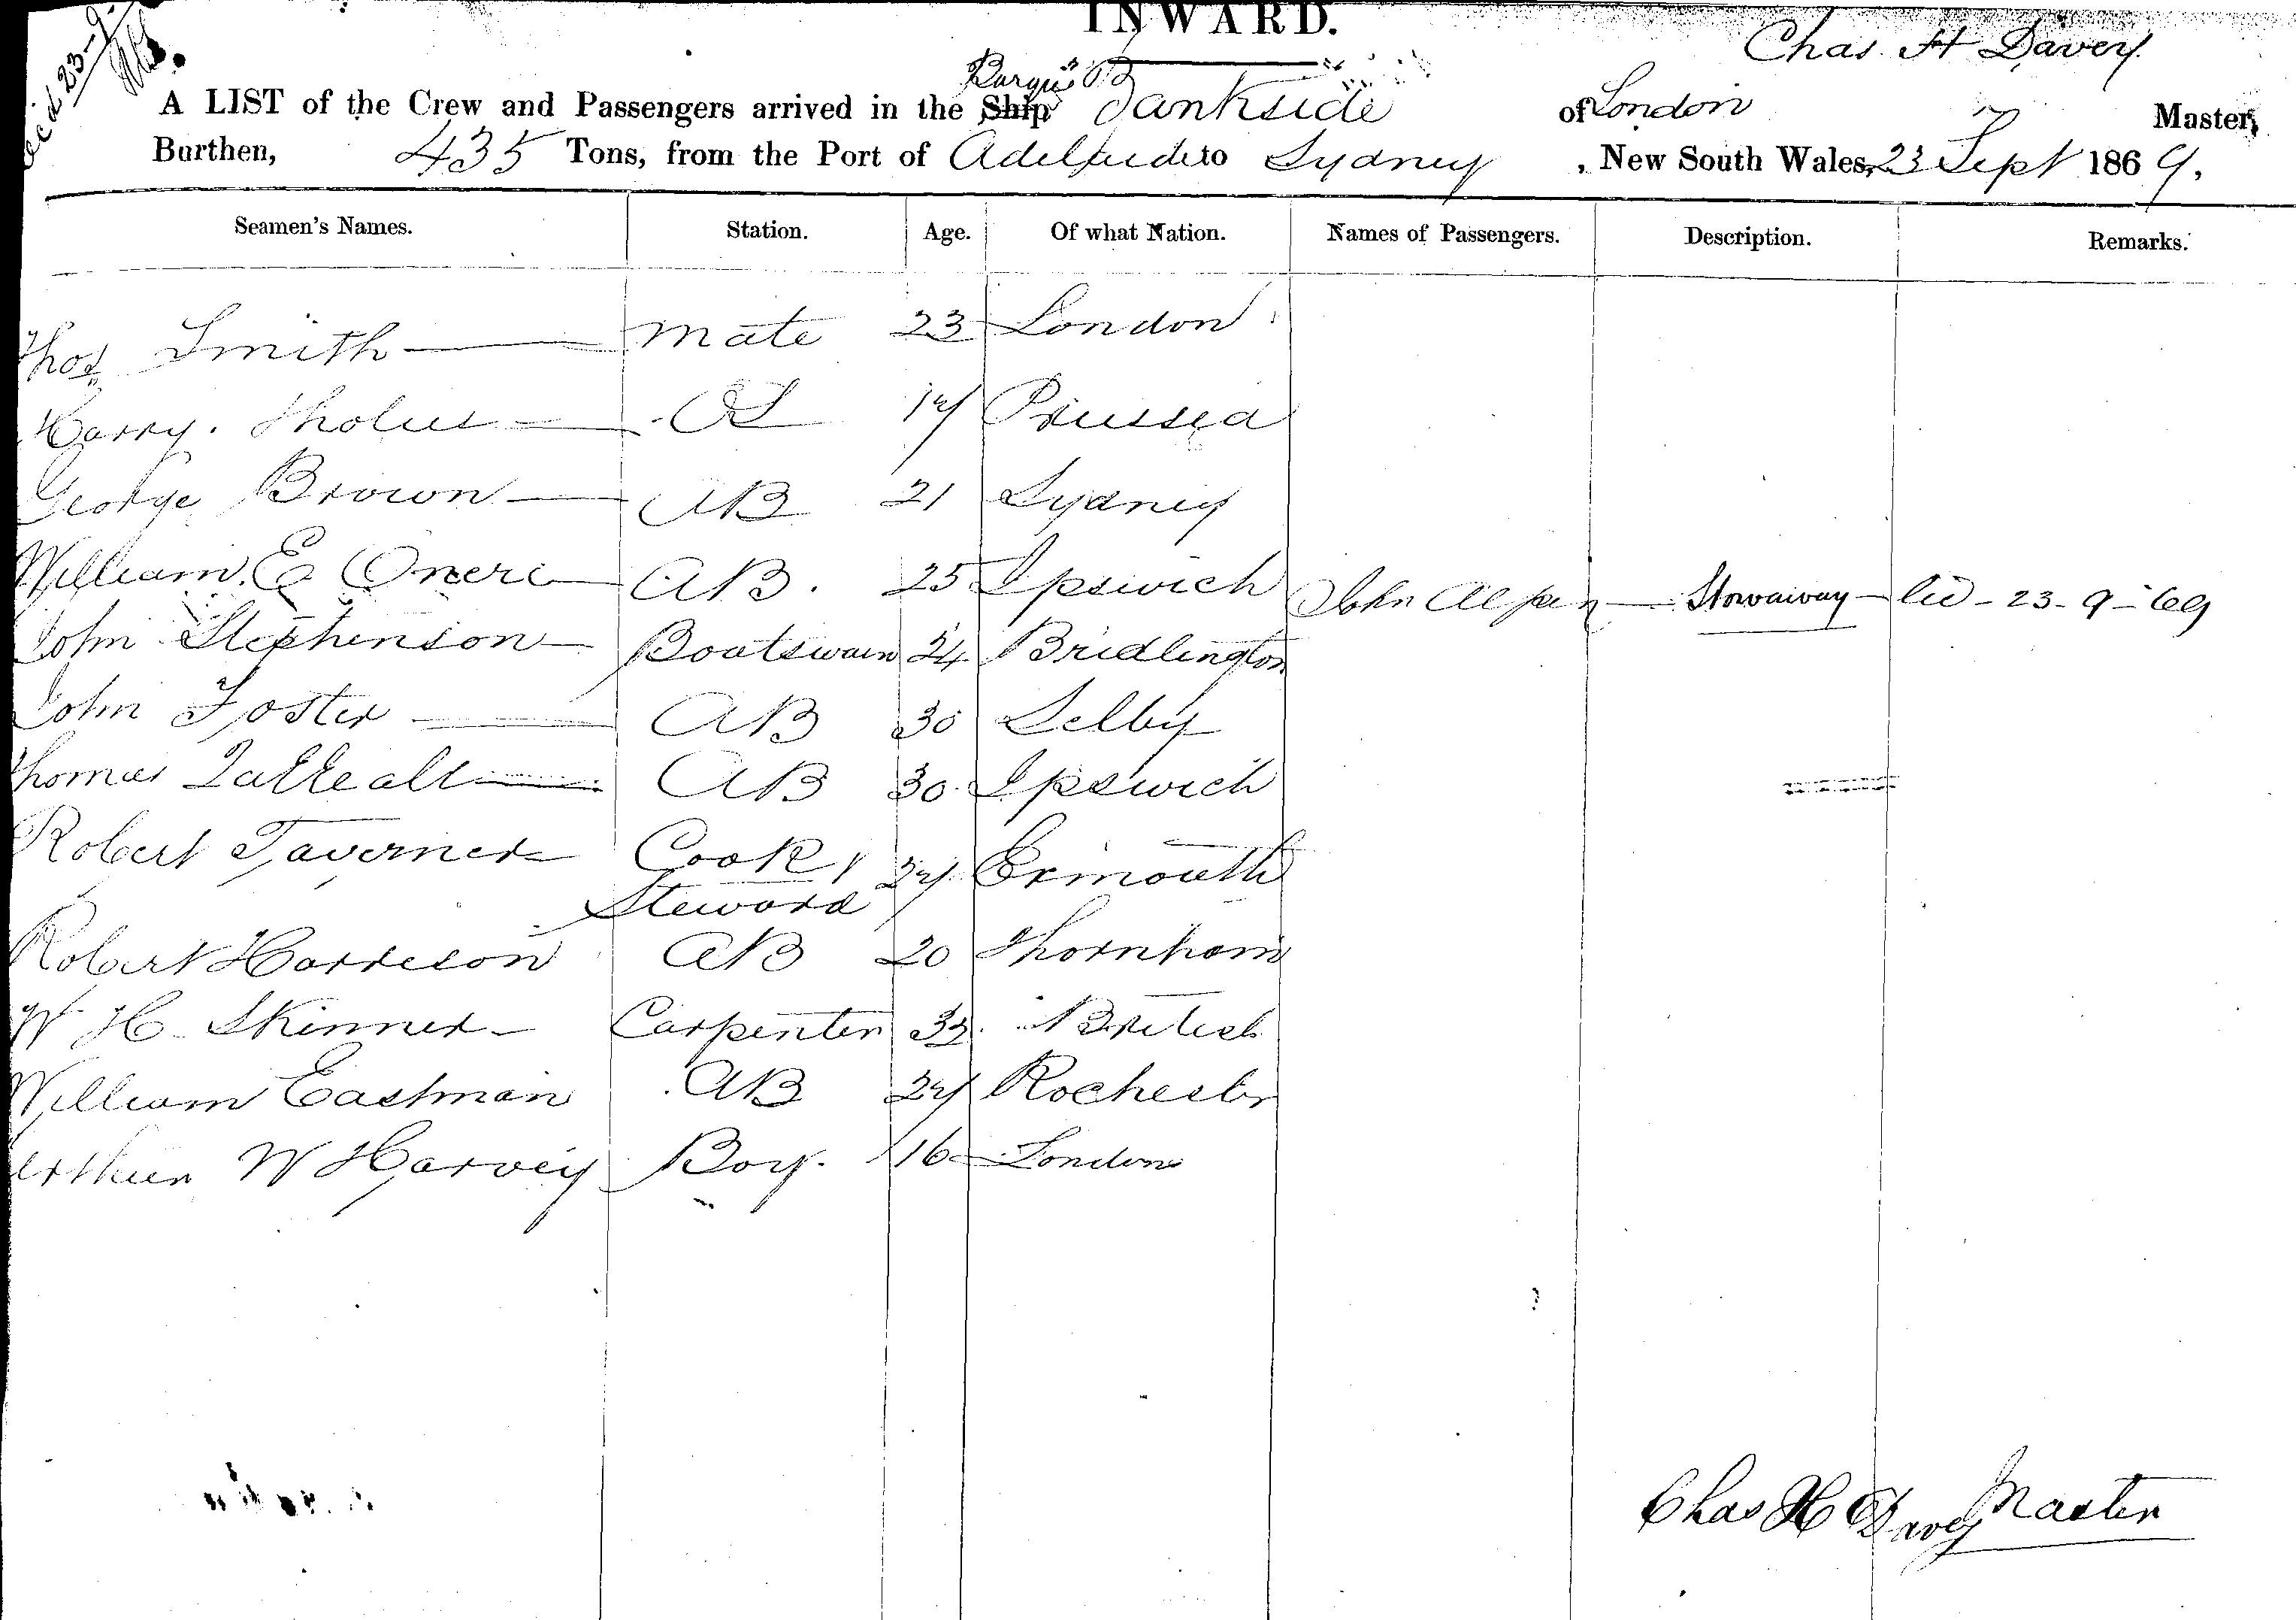 INWARD.
Chas H Davey
Barque
A LIST of the Crew and Passengers arrived in the Ship Bankside of London Master,
Burthen, 435 Tons, from the Port of Adelaide to Sydney, New South Wales, 23 Sept 1869.
Seamen's Names. Station. Age. Of what Nation. Names of Passengers. Description. Remarks.
Thos Smith Mate 23 London
Harry OS 17 Prussia
George Brown AB 21 Sydney
William E AB. 25 Ipswich John Stowaway 23-9-69
John Stephenson Boatswain 24 Bridlington
John Foster AB 30 Selby
Thomas AB 30 Ipswich
Robert Taverner Cook & Steward 27 Exmouth
Robert Harrison AB 20 Thornham
W H Skinner Carpenter British
William Eastman AB 27 Rochester
Arthur W Harvey Boy. 16 London
Chas H Davey Master